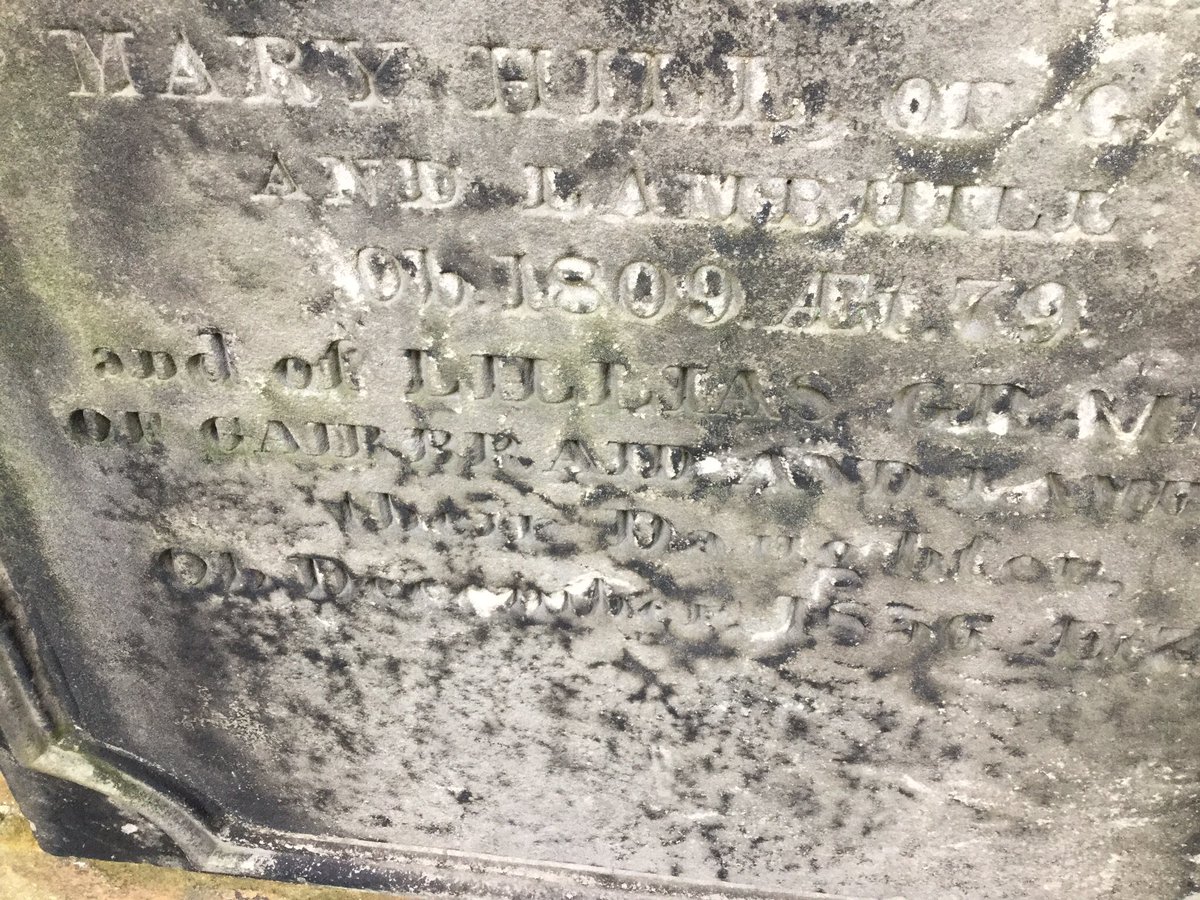 MARY HILL OF GA
AND LANBHILL
Ob. 1809. Æt. 79.
and of LILLIAS GR
OF GAIRBRAID AND
their Daughter,
Ob. December